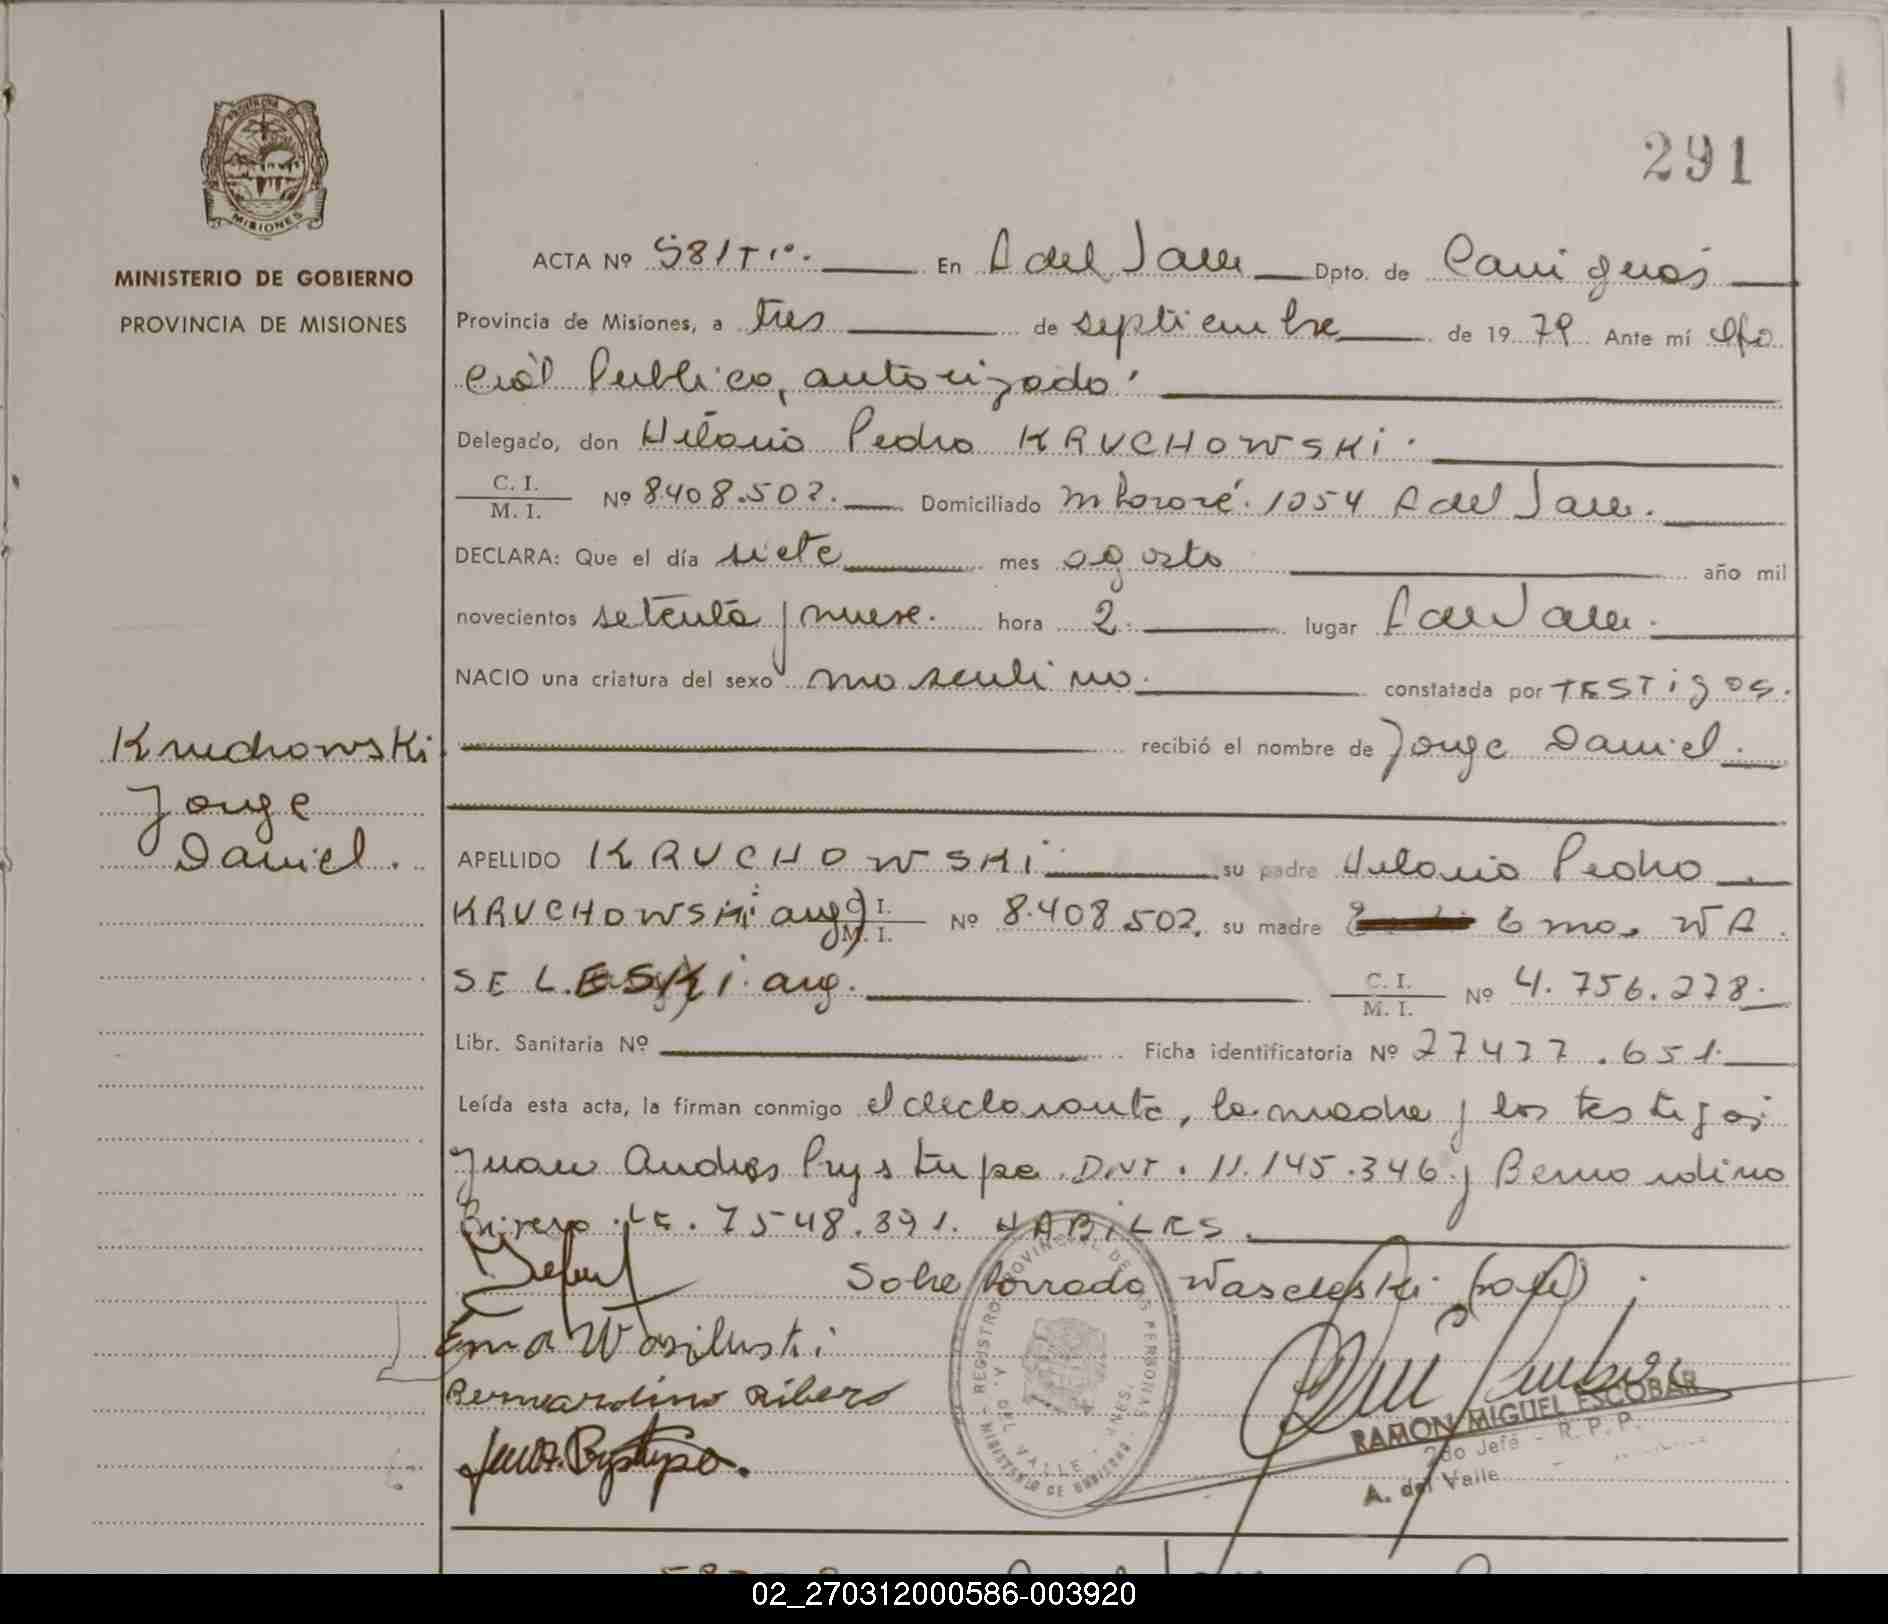 291
PROVINCIA DE
MISIONES
MINISTERIO DE GOBIERNO
PROVINCIA DE MISIONES
ACTA Nº 581 Tº. En A del Valle Dpto. de Cainguás
Provincia de Misiones, a tres de septiembre de 1979 Ante mí Ofi
cial Publico, autorizado.
Delegado, don Hilario Pedro KRUCHOWSKi.
C. I.
M. I. Nº 8.408.502. Domiciliado Mbororé. 1054 A del Valle.
DECLARA: Que el día siete mes agosto año mil
novecientos setenta y nueve. hora 2. lugar A del Valle.
NACIO una criatura del sexo masculino. constatada por TESTigos.
recibió el nombre de Jorge Daniel.
Kruchowski
Jorge
Daniel.
APELLIDO KRUCHOWSKi su padre Hilario Pedro
KRUCHOWSKi arg) C. I. M. I. Nº 8.408.502. su madre Ema. WA
SELESKi. arg. C. I. M. I. Nº 4.756.278.
Libr. Sanitaria Nº Ficha identificatoria Nº 27477.651.
Leída esta acta, la firman conmigo el declarante, la madre y los testigos
Juan Andres Prystupa. DNI. 11.145.346 y Bernardino
LE. 7548.391. HABiLES.
Sobre borrado Waseleski (vale).
Ema Wasiluski
Bernardino Ribero
Juan A. Prystupa.
REGISTRO PROVINCIAL DE LAS PERSONAS
MINISTERIO DE GOBIERNO
A. DEL VALLE - MNES.
RAMON MIGUEL ESCOBAR
2do Jefe - R. P. P.
A. del Valle
02_270312000586-003920